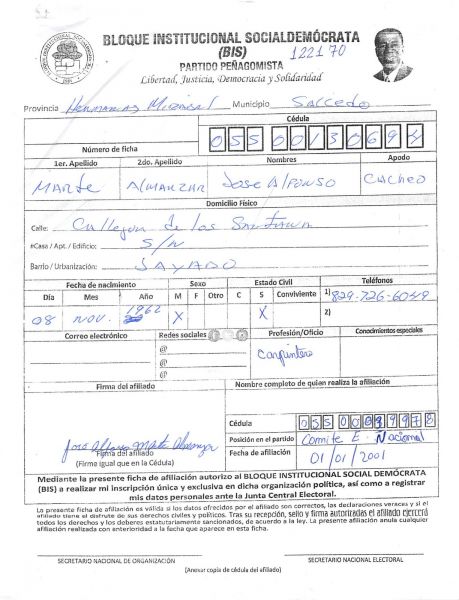 BLOQUE INSTITUCIONAL SOCIALDEMÓCRATA
(BIS)
122170
PARTIDO PEÑAGOMISTA
Libertad, Justicia, Democracia y Solidaridad
Provincia Hermanas Mirabal Municipio Salcedo
Cédula
Número de ficha 05500130694
1er. Apellido 2do. Apellido Nombres Apodo
Marte Almanzar Jose Alfonso Cacheo
Domicilio Físico
Calle: Callejon de los Santana
#Casa / Apt. / Edificio: S/N
Barrio / Urbanización: JAYABO
Fecha de nacimiento Sexo Estado Civil Teléfonos
Día Mes Año M F Otro C S Conviviente 1) 829-726-6049
08 NOV. 1962 X X 2)
Correo electrónico Redes sociales Profesión/Oficio Conocimientos especiales
@
@
@
Carpintero
Firma del afiliado Nombre completo de quien realiza la afiliación
Cédula
Posición en el partido Comite E. Nacional
Fecha de afiliación 01/01/2001
Firma del afiliado
(Firme igual que en la Cédula)
Mediante la presente ficha de afiliación autorizo al BLOQUE INSTITUCIONAL SOCIAL DEMÓCRATA
(BIS) a realizar mi inscripción única y exclusiva en dicha organización política, así como a registrar
mis datos personales ante la Junta Central Electoral.
La presente ficha de afiliación es válida si los datos ofrecidos por el afiliado son correctos, las declaraciones veraces y si el
afiliado tiene el disfrute de sus derechos civiles y políticos. Tras su recepción, sello y firma autorizadas el afiliado ejercerá
todos los derechos y los deberes estatutariamente sancionados, de acuerdo a la ley. La presente afiliación anula cualquier
afiliación realizada con anterioridad a la fecha que aparece en esta ficha.
SECRETARIO NACIONAL DE ORGANIZACIÓN SECRETARIO NACIONAL ELECTORAL
(Anexar copia de cédula del afiliado)